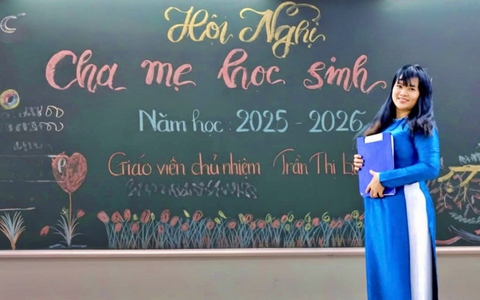 Hội Nghị
Cha mẹ học sinh
Năm học: 2025 - 2026
Giáo viên chủ nhiệm Trần Thị